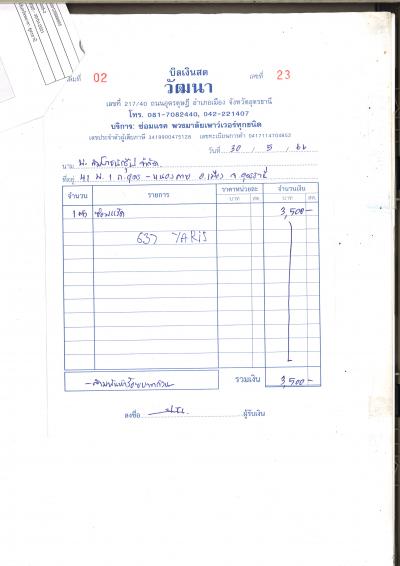 บิลเงินสด
เล่มที่ 02 วัฒนา เลขที่ 23
เลขที่ 217/40 ถนนอุดรดุษฎี อำเภอเมือง จังหวัดอุดรธานี
โทร. 081-7082440, 042-221407
บริการ: ซ่อมแรค พวงมาลัยเพาเวอร์ทุกชนิด
เลขประจำตัวผู้เสียภาษี 3419900475128 เลขทะเบียนการค้า 0417114704852
วันที่ 30 / 5 / 66
นาม จำกัด
ที่อยู่ 41 ม. 1 ถ.อุดร - หนองคาย อ.เมือง จ.อุดรธานี
จำนวน รายการ ราคาหน่วยละ จำนวนเงิน
บาท สต. บาท สต.
1 ซ่อมแร็ค 3,500 -
637 YARIS
- สามพันห้าร้อยบาทถ้วน - รวมเงิน 3,500 -
ลงชื่อ ผู้รับเงิน